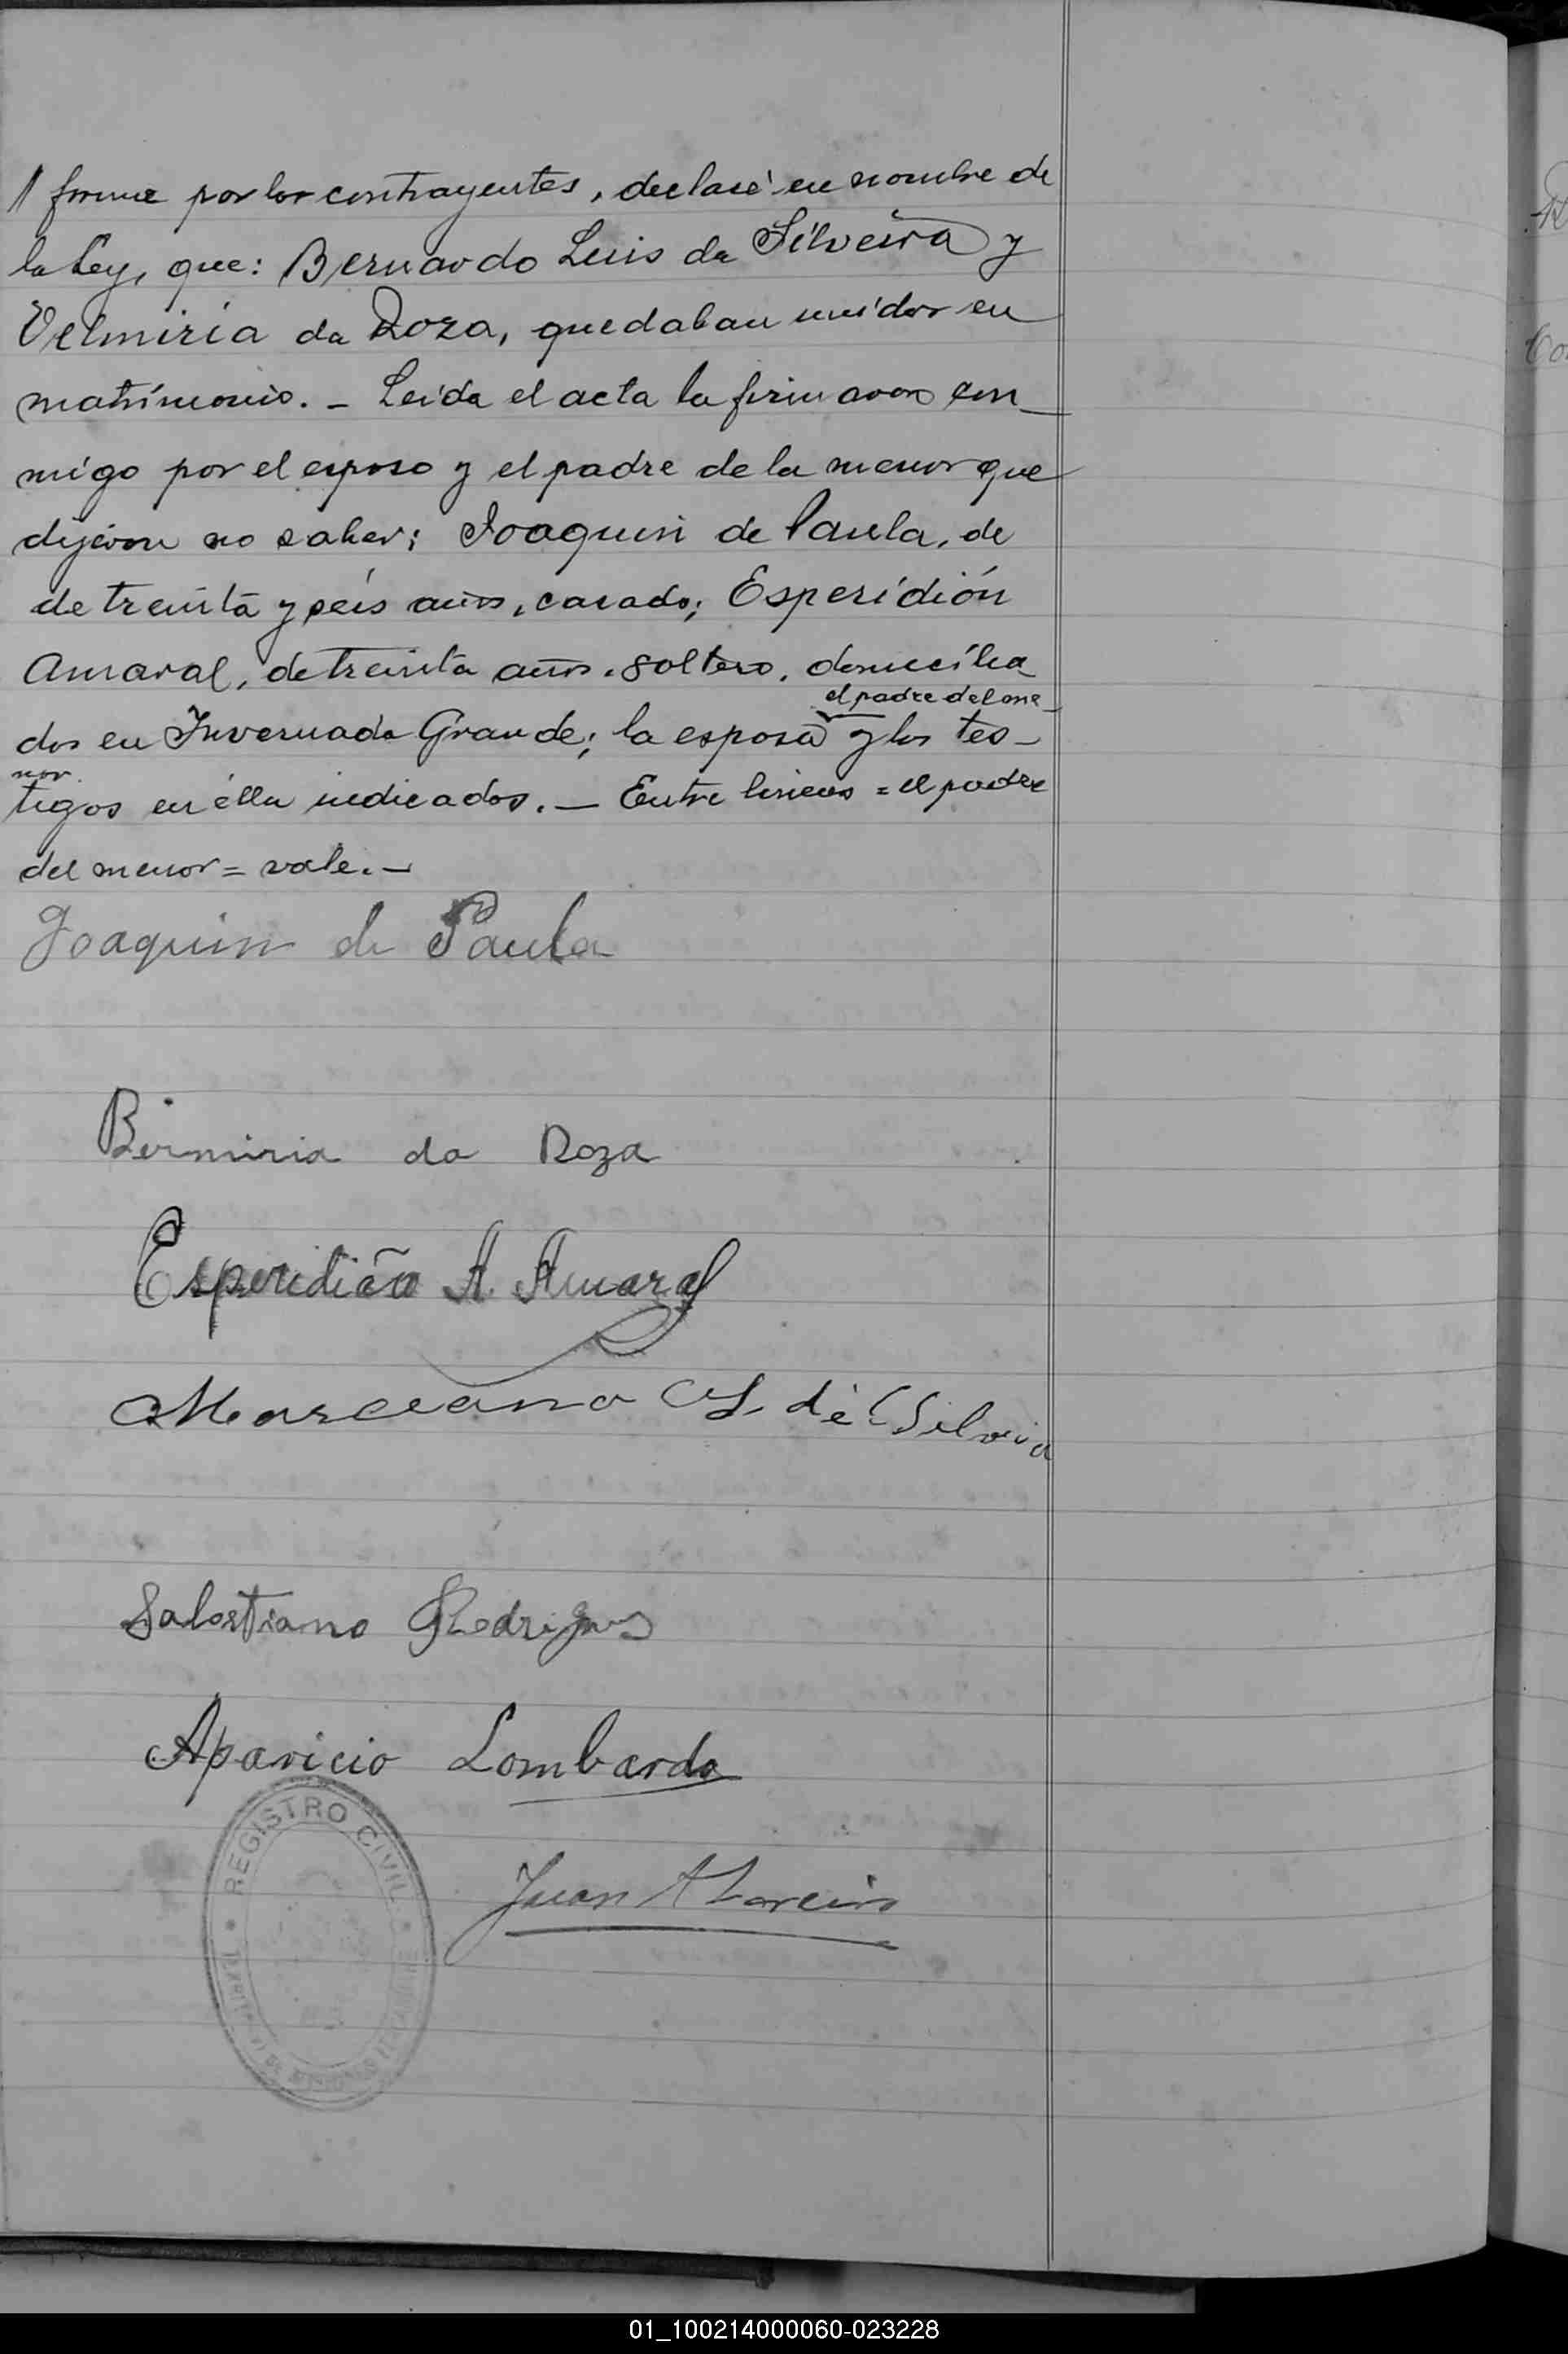 firme por los contrayentes, declaré en nombre de
la Ley, que: Bernardo Luis da Silveira y
Velmiria da Roza, quedaban unidos en
matrimonio. - Leida el acta la firmaron con-
migo por el esposo y el padre de la menor que
dijeron no saber; Joaquin de Paula, de
de treinta y seis años, casado; Esperidión
Amaral, de treinta años, soltero, domicilia
dos en Invernada Grande; la esposa el padre del me-
nor y los tes-
tigos en élla indicados. - Entre lineas = el padre
del menor = vale. -
Joaquin de Paula
Birmiria da Roza
Esperidião A. Amaral
Marceano L. de Silveia
Salostiano Rodrigues
Aparicio Lombardo
Juan A Loreiro
REGISTRO CIVIL
01_100214000060-023228